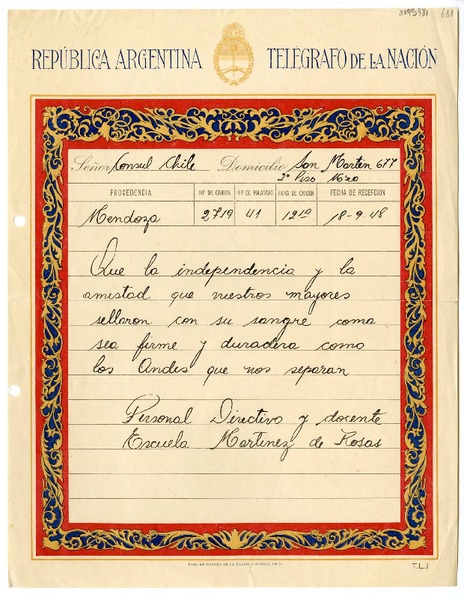 681
REPÚBLICA ARGENTINA TELÉGRAFO DE LA NACIÓN
Señor Consul Chile Domicilio San Martin 677
2º Piso
PROCEDENCIA Nº DE ORIGEN Nº DE PALABRAS HORA DE ORIGEN FECHA DE RECEPCIÓN
Mendoza 2719 41 1210 18-9-48
Que la independencia y la
amistad que nuestros mayores
sellaron con su sangre como
sea firme y duradera como
los Andes que nos separan
Personal Directivo y docente
Escuela Martinez de Rosas
T.L.1